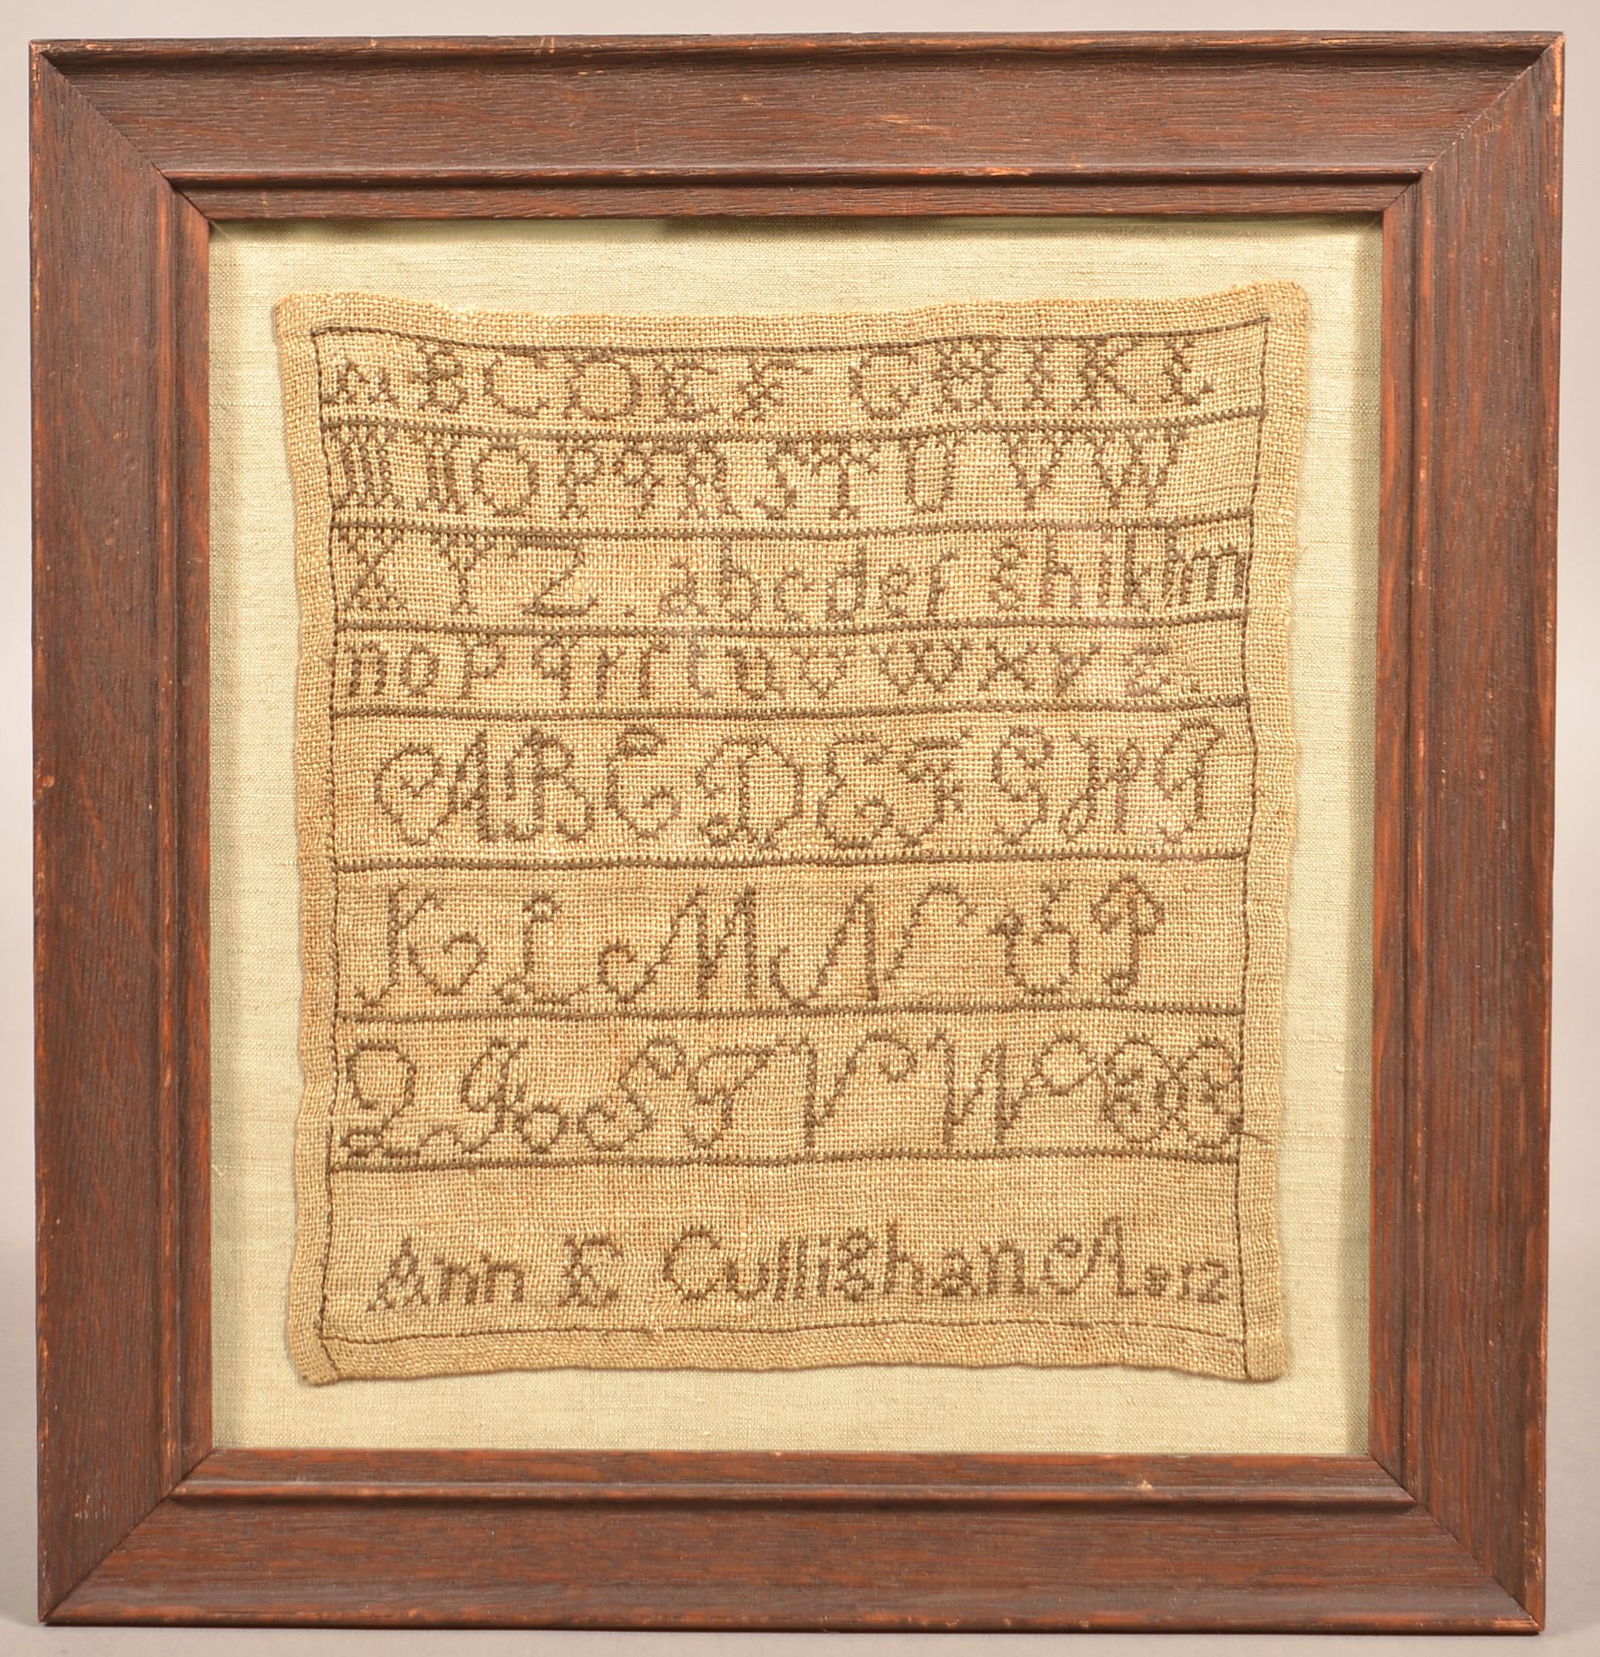 ABCDEF GHIKL
MNOPQRSTUVW
XYZ. abcdef ghiklm
nopqrſtuvwxyz.
ABCDEFGHI
KLMNOP
QRSTVWX
Ann E Cullighan A 812